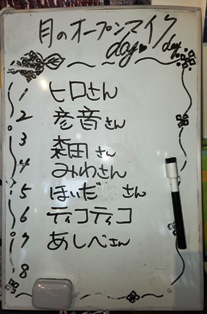 月のオープンマイク
day♥/day
1 ヒロさん
2 彦音さん
3 森田さん
4 みわさん
5 ほいだ さん
6 ティコティコ
7 あしべさん
8